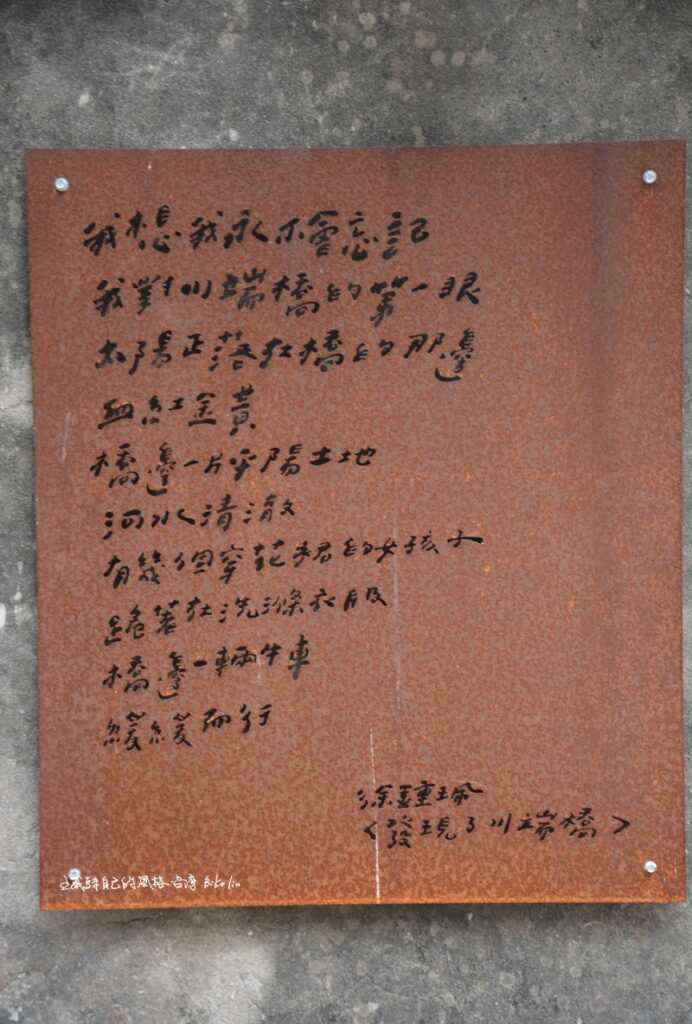 我想我永不會忘記
我對川端橋的第一眼
太陽正落在橋的那邊
血紅金黃
橋邊一片平陽土地
河水清澈
有幾個穿花裙的女孩子
跪著在洗滌衣服
橋邊一輛牛車
緩緩而行
徐鍾珮
<發現了川端橋>
自己的風格 台灣